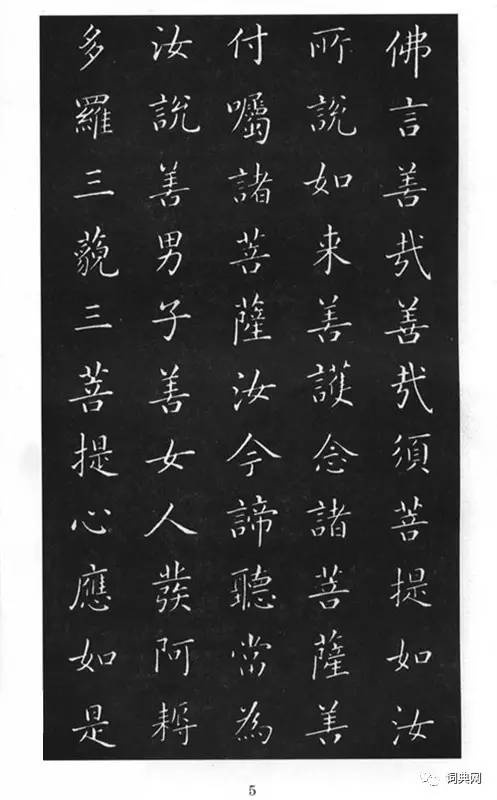 佛言善哉善哉須菩提如汝
所說如来善護念諸菩薩善
付囑諸菩薩汝今諦聽當為
汝說善男子善女人發阿耨
多羅三藐三菩提心應如是
5
词典网